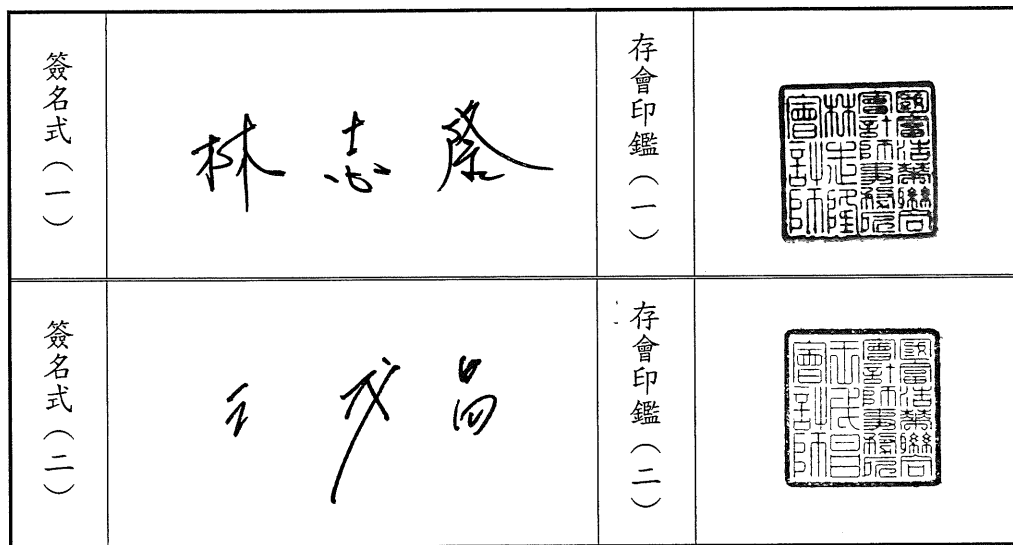 簽名式（一）
林志隆
存會印鑑（一）
國富浩華聯合
會計師事務所
林志隆
會計師
簽名式（二）
王戊昌
存會印鑑（二）
國富浩華聯合
會計師事務所
王戊昌
會計師